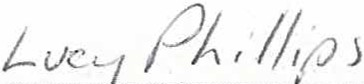 Lucy Phillips